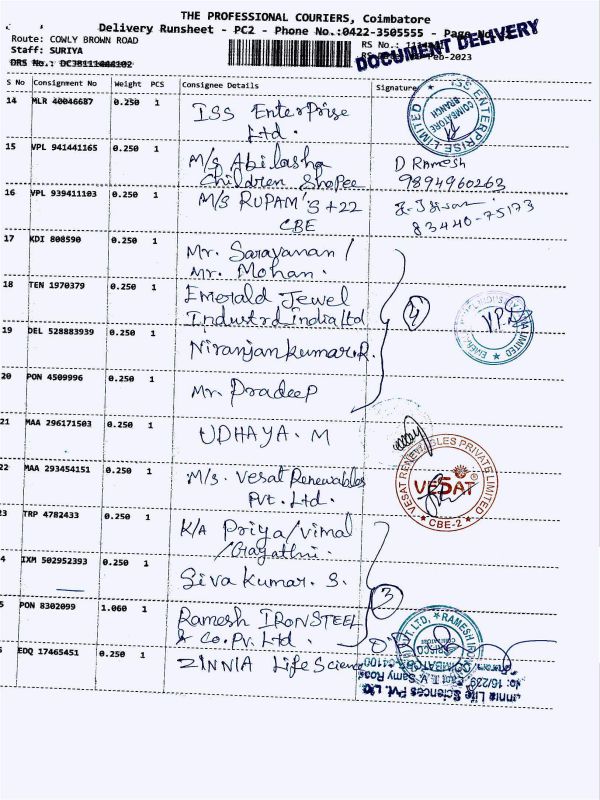 THE PROFESSIONAL COURIERS, Coimbatore
Delivery Runsheet - PC2 - Phone No.:0422-3505555 - Page No
Route: COWLY BROWN ROAD
Staff: SURIYA
RS No.:
DRS No.: DCJB111444102
Feb-2023
DOCUMENT DELIVERY
S No Consignment No Weight PCS Consignee Details Signature
14 MLR 40046687 0.250 1 ISS Enterprise
Ltd.
ISS ENTERPRISE LIMITED
COIMBATORE
BRANCH
15 VPL 941441165 0.250 1 M/s Abilasha
Children Shopee
D Ramesh
9894960263
16 VPL 939411103 0.250 1 M/S RUPAM'S +22
CBE
83440-75173
17 KDI 808590 0.250 1 Mr. Saravanan /
Mr. Mohan.
18 TEN 1970379 0.250 1 Emerald Jewel
Industrd India Ltd
4
19 DEL 528883939 0.250 1 Niranjankumar.R.
20 PON 4509996 0.250 1 Mr. Pradeep
21 MAA 296171503 0.250 1 UDHAYA. M
22 MAA 293454151 0.250 1 M/s. Vesat Renewables
Pvt. Ltd.
VESAT RENEWABLES PRIVATE LIMITED
VESAT
CBE-2
3 TRP 4782433 0.250 1 K/A Priya/Vimal
/Gayathri.
4 IXM 502952393 0.250 1 Siva Kumar. S.
3
5 PON 8302099 1.060 1 Ramesh IRONSTEEL
& Co.Pv. Ltd.
6 EDQ 17465451 0.250 1 ZINNIA Life Science
nnia Life Sciences Pvt. Ltd
No: 16/239, East T.V. Samy Road